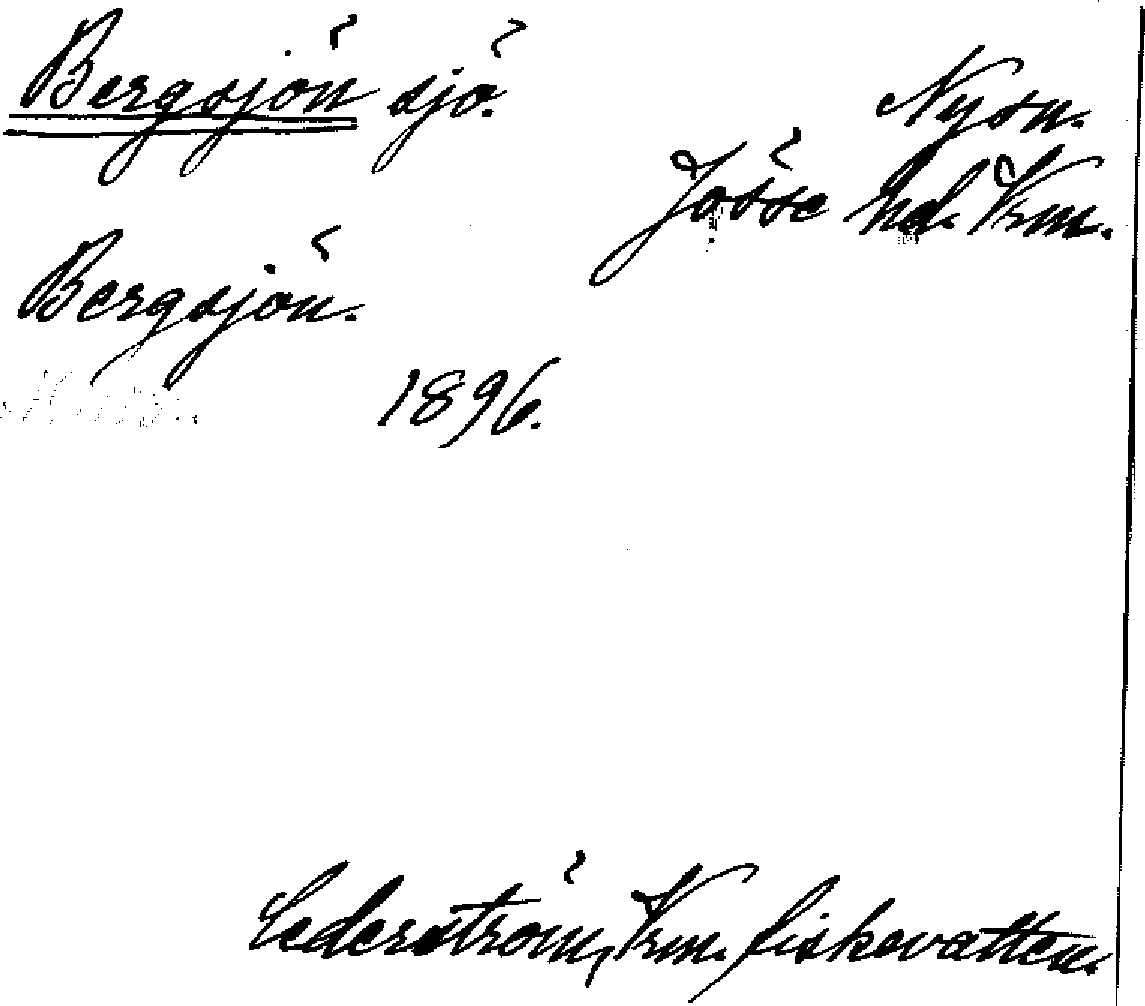 Bergsjön sjö.
Ny sn.
Jösse hd. Vrm.
Bergsjön.
1896.
Cederström, Vrm. fiskevatten.